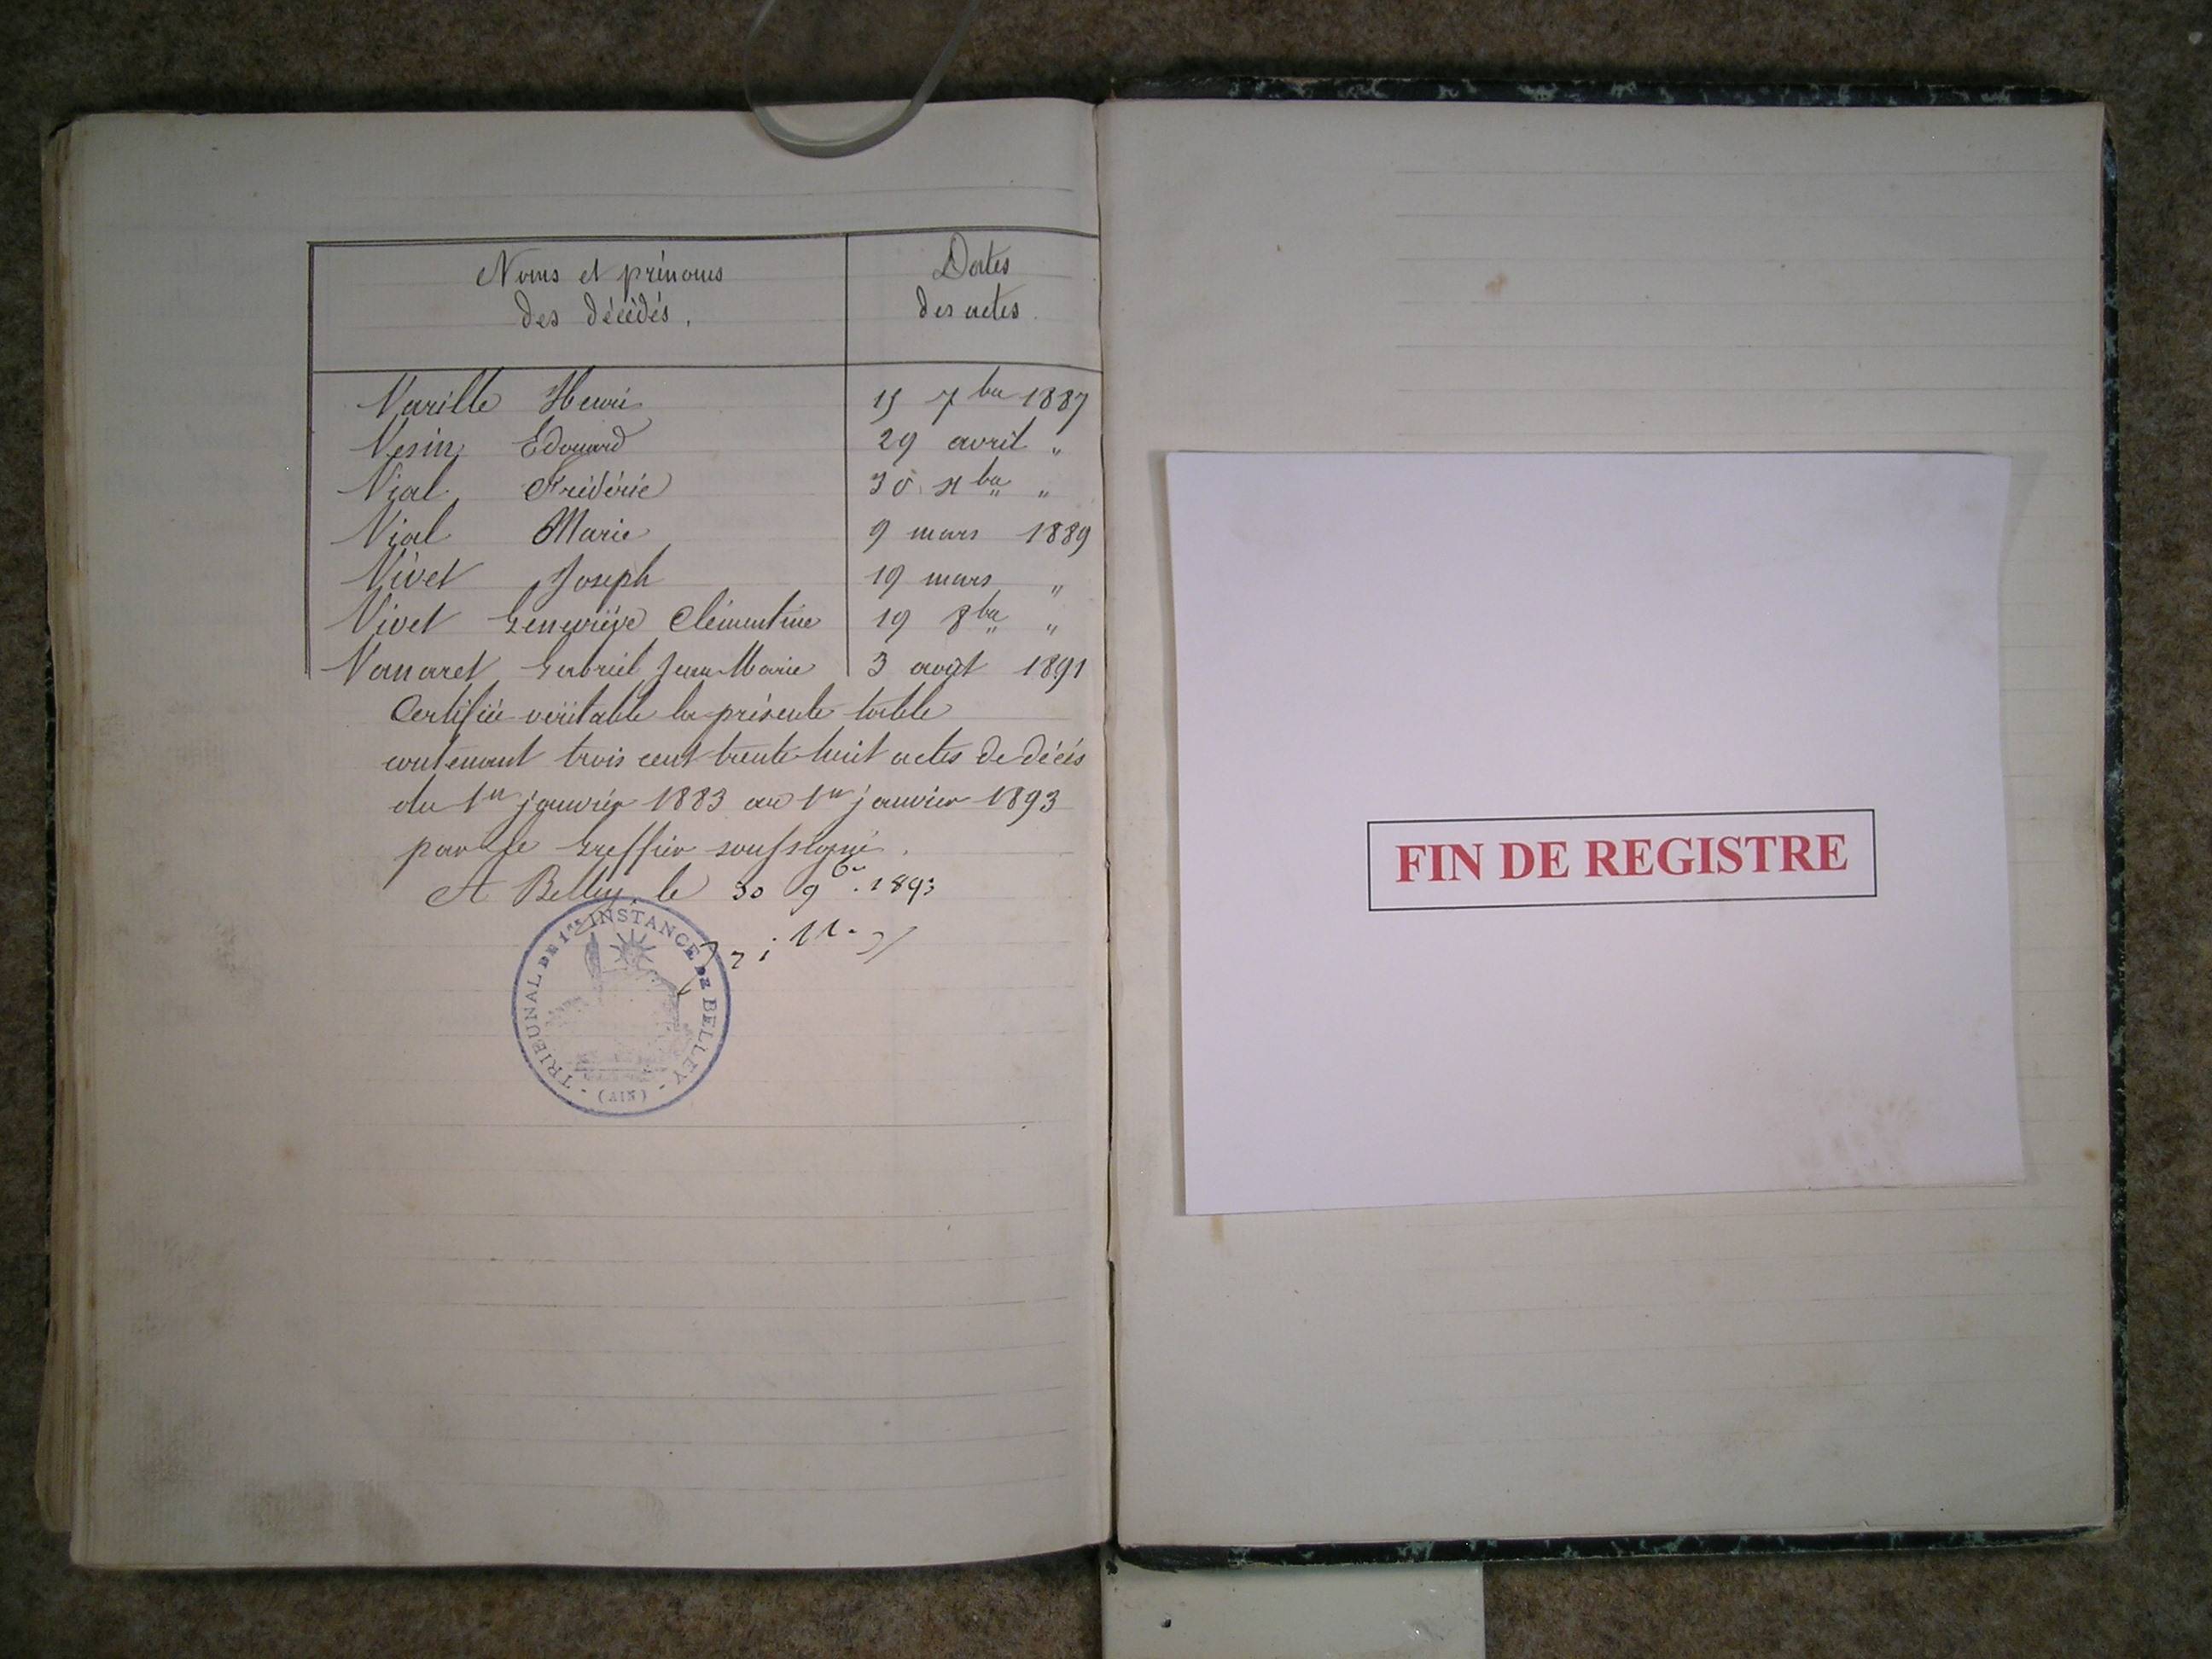 Noms et prénoms
des décédés.
Dates
des actes.
Varille Henri 15 7bre 1887
Vesin Edouard 29 avril "
Vial Frédéric 30 xbre "
Vial Marie 9 mars 1889
Vivet Joseph 19 mars "
Vivet Geneviève Clémentine 19 8bre "
Vanaret Gabriel Jean Marie 3 août 1891
Certifiée véritable la présente table
contenant trois cent trente huit actes de décès
du 1er janvier 1883 au 1er janvier 1893
par le Greffier soussigné.
A Belley, le 30 9bre 1893
TRIBUNAL DE 1re INSTANCE DE BELLEY
(AIN)
FIN DE REGISTRE